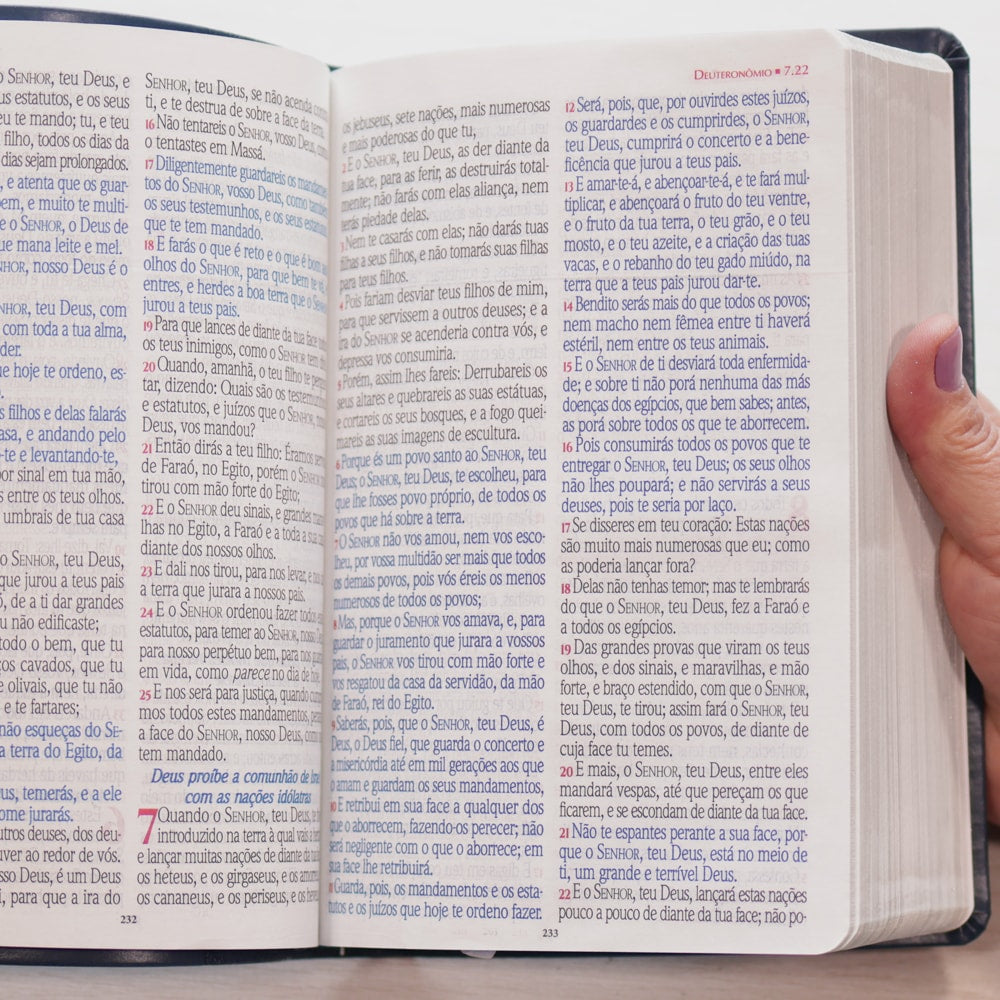 SENHOR, teu Deus, e
s estatutos, e os seus
eu te mando; tu, e teu
filho, todos os dias da
dias sejam prolongados.
, e atenta que os guar-
bem, e muito te multi-
e o SENHOR, o Deus de
que mana leite e mel.
NHOR, nosso Deus é o
NHOR, teu Deus, com
com toda a tua alma,
der.
ue hoje te ordeno, es-
s filhos e delas falarás
casa, e andando pelo
-te e levantando-te,
por sinal em tua mão,
s entre os teus olhos.
umbrais de tua casa
o SENHOR, teu Deus,
que jurou a teus pais
ó, de a ti dar grandes
u não edificaste;
todo o bem, que tu
ços cavados, que tu
e olivais, que tu não
e te fartares;
não esqueças do SE-
a terra do Egito, da
us, temerás, e a ele
ome jurarás.
utros deuses, dos deu-
uver ao redor de vós.
sso Deus, é um Deus
i, para que a ira do
SENHOR, teu Deus, se não acenda
ti, e te destrua de sobre a face da terra.
16 Não tentareis o SENHOR, vosso Deus,
o tentastes em Massá.
17 Diligentemente guardareis os
tos do SENHOR, vosso Deus, como
os seus testemunhos, e os seus
que te tem mandado.
18 E farás o que é reto e o que é bom
olhos do SENHOR, para que bem te
entres, e herdes a boa terra que o
jurou a teus pais.
19 Para que lances de diante da tua face
os teus inimigos, como o SENHOR tem
20 Quando, amanhã, o teu filho te
tar, dizendo: Quais são os
e estatutos, e juízos que o SENHOR,
Deus, vos mandou?
21 Então dirás a teu filho: Éramos
de Faraó, no Egito, porém o
tirou com mão forte do Egito;
22 E o SENHOR deu sinais, e grandes
lhas no Egito, a Faraó e a toda a sua
diante dos nossos olhos.
23 E dali nos tirou, para nos levar, e
a terra que jurara a nossos pais.
24 E o SENHOR ordenou fazer todos
estatutos, para temer ao SENHOR,
para nosso perpétuo bem, para nos
em vida, como parece no dia de
25 E nos será para justiça, quando
mos todos estes mandamentos,
a face do SENHOR, nosso Deus,
tem mandado.
Deus proíbe a comunhão de
com as nações idólatras
7 Quando o SENHOR, teu Deus,
introduzido na terra à qual vais a
e lançar muitas nações de diante da
os heteus, e os girgaseus, e os
os cananeus, e os periseus, e os
232
DEUTERONÔMIO ▪ 7.22
os jebuseus, sete nações, mais numerosas
e mais poderosas do que tu,
2 E o SENHOR, teu Deus, as der diante da
tua face, para as ferir, as destruirás total-
mente; não farás com elas aliança, nem
terás piedade delas.
3 Nem te casarás com elas; não darás tuas
filhas a seus filhos, e não tomarás suas filhas
para teus filhos.
4 Pois fariam desviar teus filhos de mim,
para que servissem a outros deuses; e a
ira do SENHOR se acenderia contra vós, e
depressa vos consumiria.
5 Porém, assim lhes fareis: Derrubareis os
seus altares e quebrareis as suas estátuas,
e cortareis os seus bosques, e a fogo quei-
mareis as suas imagens de escultura.
6 Porque és um povo santo ao SENHOR, teu
Deus; o SENHOR, teu Deus, te escolheu, para
que lhe fosses povo próprio, de todos os
povos que há sobre a terra.
7 O SENHOR não vos amou, nem vos esco-
lheu, por vossa multidão ser mais que todos
os demais povos, pois vós éreis os menos
numerosos de todos os povos;
8 Mas, porque o SENHOR vos amava, e, para
guardar o juramento que jurara a vossos
pais, o SENHOR vos tirou com mão forte e
vos resgatou da casa da servidão, da mão
de Faraó, rei do Egito.
9 Saberás, pois, que o SENHOR, teu Deus, é
Deus, o Deus fiel, que guarda o concerto e
a misericórdia até em mil gerações aos que
o amam e guardam os seus mandamentos,
10 E retribui em sua face a qualquer dos
que o aborrecem, fazendo-os perecer; não
será negligente com o que o aborrece; em
sua face lhe retribuirá.
11 Guarda, pois, os mandamentos e os esta-
tutos e os juízos que hoje te ordeno fazer.
12 Será, pois, que, por ouvirdes estes juízos,
os guardardes e os cumprirdes, o SENHOR,
teu Deus, cumprirá o concerto e a bene-
ficência que jurou a teus pais.
13 E amar-te-á, e abençoar-te-á, e te fará mul-
tiplicar, e abençoará o fruto do teu ventre,
e o fruto da tua terra, o teu grão, e o teu
mosto, e o teu azeite, e a criação das tuas
vacas, e o rebanho do teu gado miúdo, na
terra que a teus pais jurou dar-te.
14 Bendito serás mais do que todos os povos;
nem macho nem fêmea entre ti haverá
estéril, nem entre os teus animais.
15 E o SENHOR de ti desviará toda enfermida-
de; e sobre ti não porá nenhuma das más
doenças dos egípcios, que bem sabes; antes,
as porá sobre todos os que te aborrecem.
16 Pois consumirás todos os povos que te
entregar o SENHOR, teu Deus; os seus olhos
não lhes poupará; e não servirás a seus
deuses, pois te seria por laço.
17 Se disseres em teu coração: Estas nações
são muito mais numerosas que eu; como
as poderia lançar fora?
18 Delas não tenhas temor; mas te lembrarás
do que o SENHOR, teu Deus, fez a Faraó e
a todos os egípcios.
19 Das grandes provas que viram os teus
olhos, e dos sinais, e maravilhas, e mão
forte, e braço estendido, com que o SENHOR,
teu Deus, te tirou; assim fará o SENHOR, teu
Deus, com todos os povos, de diante de
cuja face tu temes.
20 E mais, o SENHOR, teu Deus, entre eles
mandará vespas, até que pereçam os que
ficarem, e se escondam de diante da tua face.
21 Não te espantes perante a sua face, por-
que o SENHOR, teu Deus, está no meio de
ti, um grande e terrível Deus.
22 E o SENHOR, teu Deus, lançará estas nações
pouco a pouco de diante da tua face; não po-
233